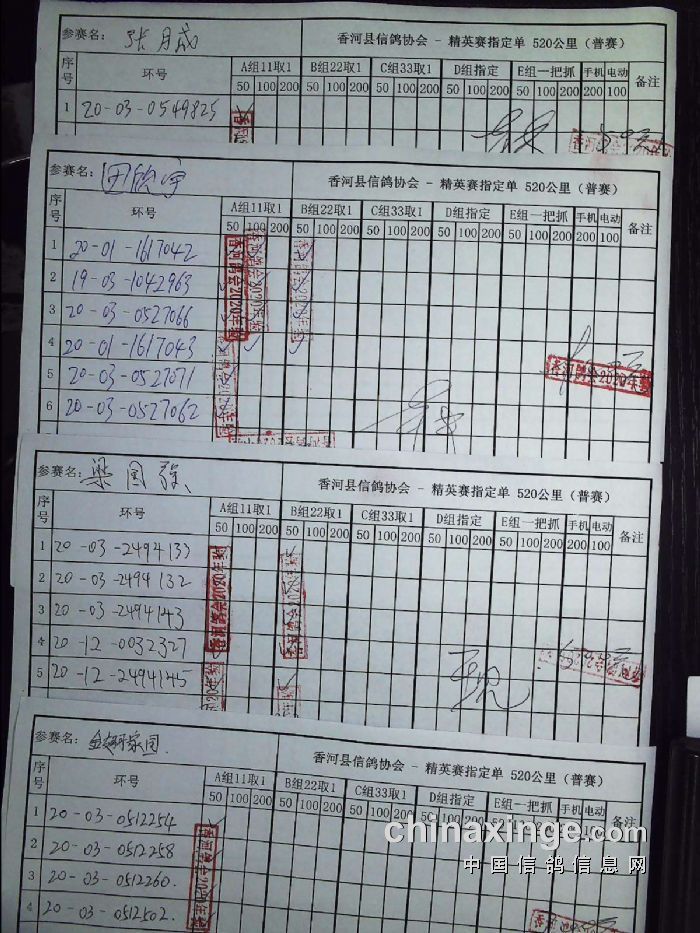 参赛名: 张月成 香河县信鸽协会 - 精英赛指定单 520公里（普赛）
序号 环号 A组11取1 B组22取1 C组33取1 D组指定 E组一把抓 手机 电动 备注
50 100 200 50 100 200 50 100 200 50 100 200 50 100 200 200 100
1 20-03-0549825
参赛名: 田欣宇 香河县信鸽协会 - 精英赛指定单 520公里（普赛）
序号 环号 A组11取1 B组22取1 C组33取1 D组指定 E组一把抓 手机 电动 备注
50 100 200 50 100 200 50 100 200 50 100 200 50 100 200 200 100
1 20-01-1617042
2 19-03-1042963
3 20-03-0527066
4 20-01-1617043
5 20-03-0527071
6 20-03-0527062
香河鸽会2020年
参赛名: 梁国 香河县信鸽协会 - 精英赛指定单 520公里（普赛）
序号 环号 A组11取1 B组22取1 C组33取1 D组指定 E组一把抓 手机 电动 备注
50 100 200 50 100 200 50 100 200 50 100 200 50 100 200 200 100
1 20-03-2494133
2 20-03-2494132
3 20-03-2494143
4 20-12-0032327
5 20-12-2494145
香河鸽会2020年
参赛名: 家园 香河县信鸽协会 - 精英赛指定单 520公里（普赛）
序号 环号 A组11取1 B组22取1 C组33取1 D组指定 E组一把抓 手机 电动 备注
50 100 200 50 100 200 50 100 200
1 20-03-0512254
2 20-03-0512258
3 20-03-0512260.
4 20-03-0512502.
chinaxinge.com
中国信鸽信息网